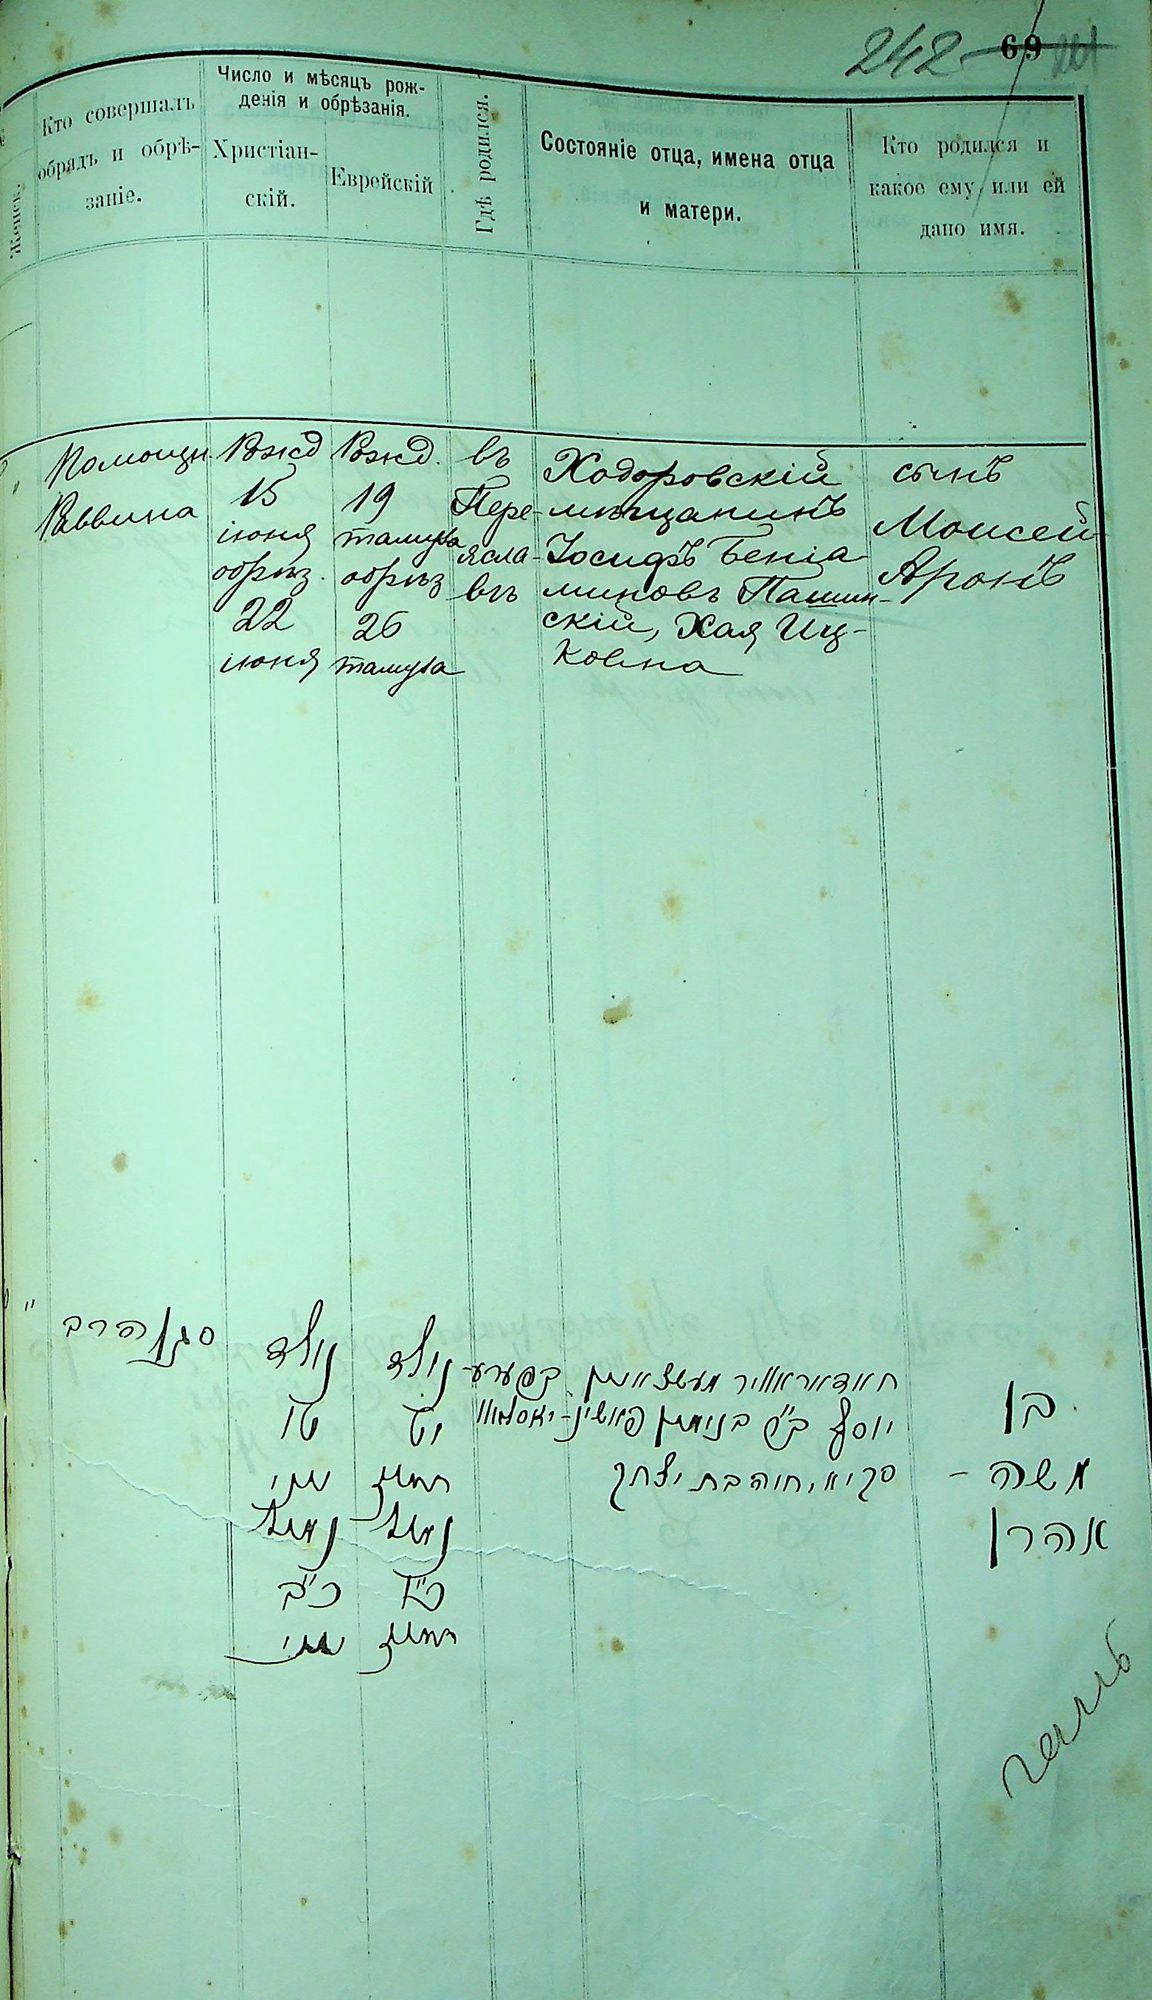 242 69
Женск.
Кто совершалъ
обрядъ и обрѣ-
заніе.
Число и мѣсяцъ рож-
денія и обрѣзанія.
Христіан-
скій.
Еврейскій
Гдѣ родился.
Состояніе отца, имена отца
и матери.
Кто родился и
какое ему или ей
дано имя.
Помощн.
Раввина
Рожд
15
іюня
обрѣз.
22
іюня
Рожд.
19
тамуза
обрѣз
26
тамуза
въ
Пере-
ясла-
въ
Ходоровскій
мѣщанинъ
Іосифъ Беніа-
миновъ Пашин-
скій, Хая Иц-
ковна
сынъ
Моисей
Аронъ
סגן הרב
נולד
טו
יוני
נימול
כ"ב
יוני
נולד
יט
תמוז
נימול
כ"ו
תמוז
יוסף ב"ר בנימין פאשין-
סקיא, חיה בת יצחק
בן
משה -
אהרן